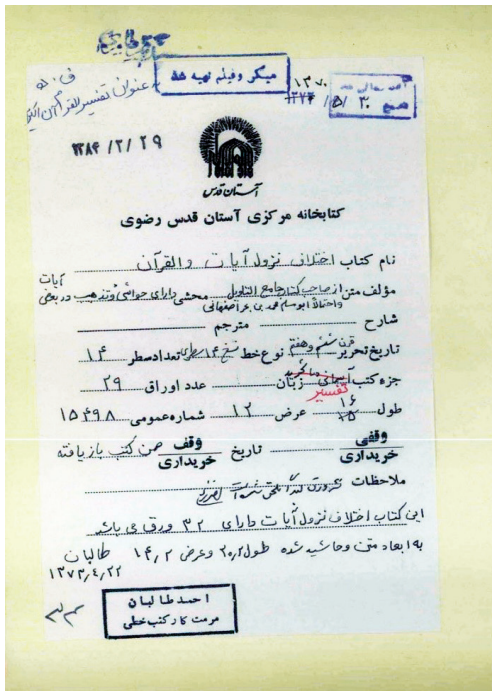 میکروفیلم تهیه شد
عنوان تفسیر القرآن
۱۳۷۰
۳۰ /۵/ ۱۳۷۴
۱۳۸۴ /۲/ ۲۹
آستان قدس
کتابخانه مرکزی آستان قدس رضوی
نام کتاب اختلاف نزول آیات والقرآن
مؤلف متن از صاحب کتاب جامع التاویل محشی دارای حواشی و تذهیب در بعضی آیات
واحتمالاً ابومسلم محمد بن بحر اصفهانی
شارح مترجم
تاریخ تحریر قرن ششم وهفتم نوع خط نسخ ۱۴ سطری تعدادسطر ۱۴
جزء کتب زبان عدد اوراق ۲۹
تفسیر
طول ۱۶ ۱۵ عرض ۱۲ شماره عمومی ۱۵۴۹۸
وقفی خریداری تاریخ وقف خریداری ضمن کتب بازیافته
ملاحظات
این کتاب اختلاف نزول آیات دارای ۳۲ ورق می باشد
به ابعاد متن وحاشیه شده طول ۲۰٫۲ وعرض ۱۴٫۲ طالبان
۱۳۷۳٫۴٫۲۲
احمد طالبان
مرمت کار کتب خطی